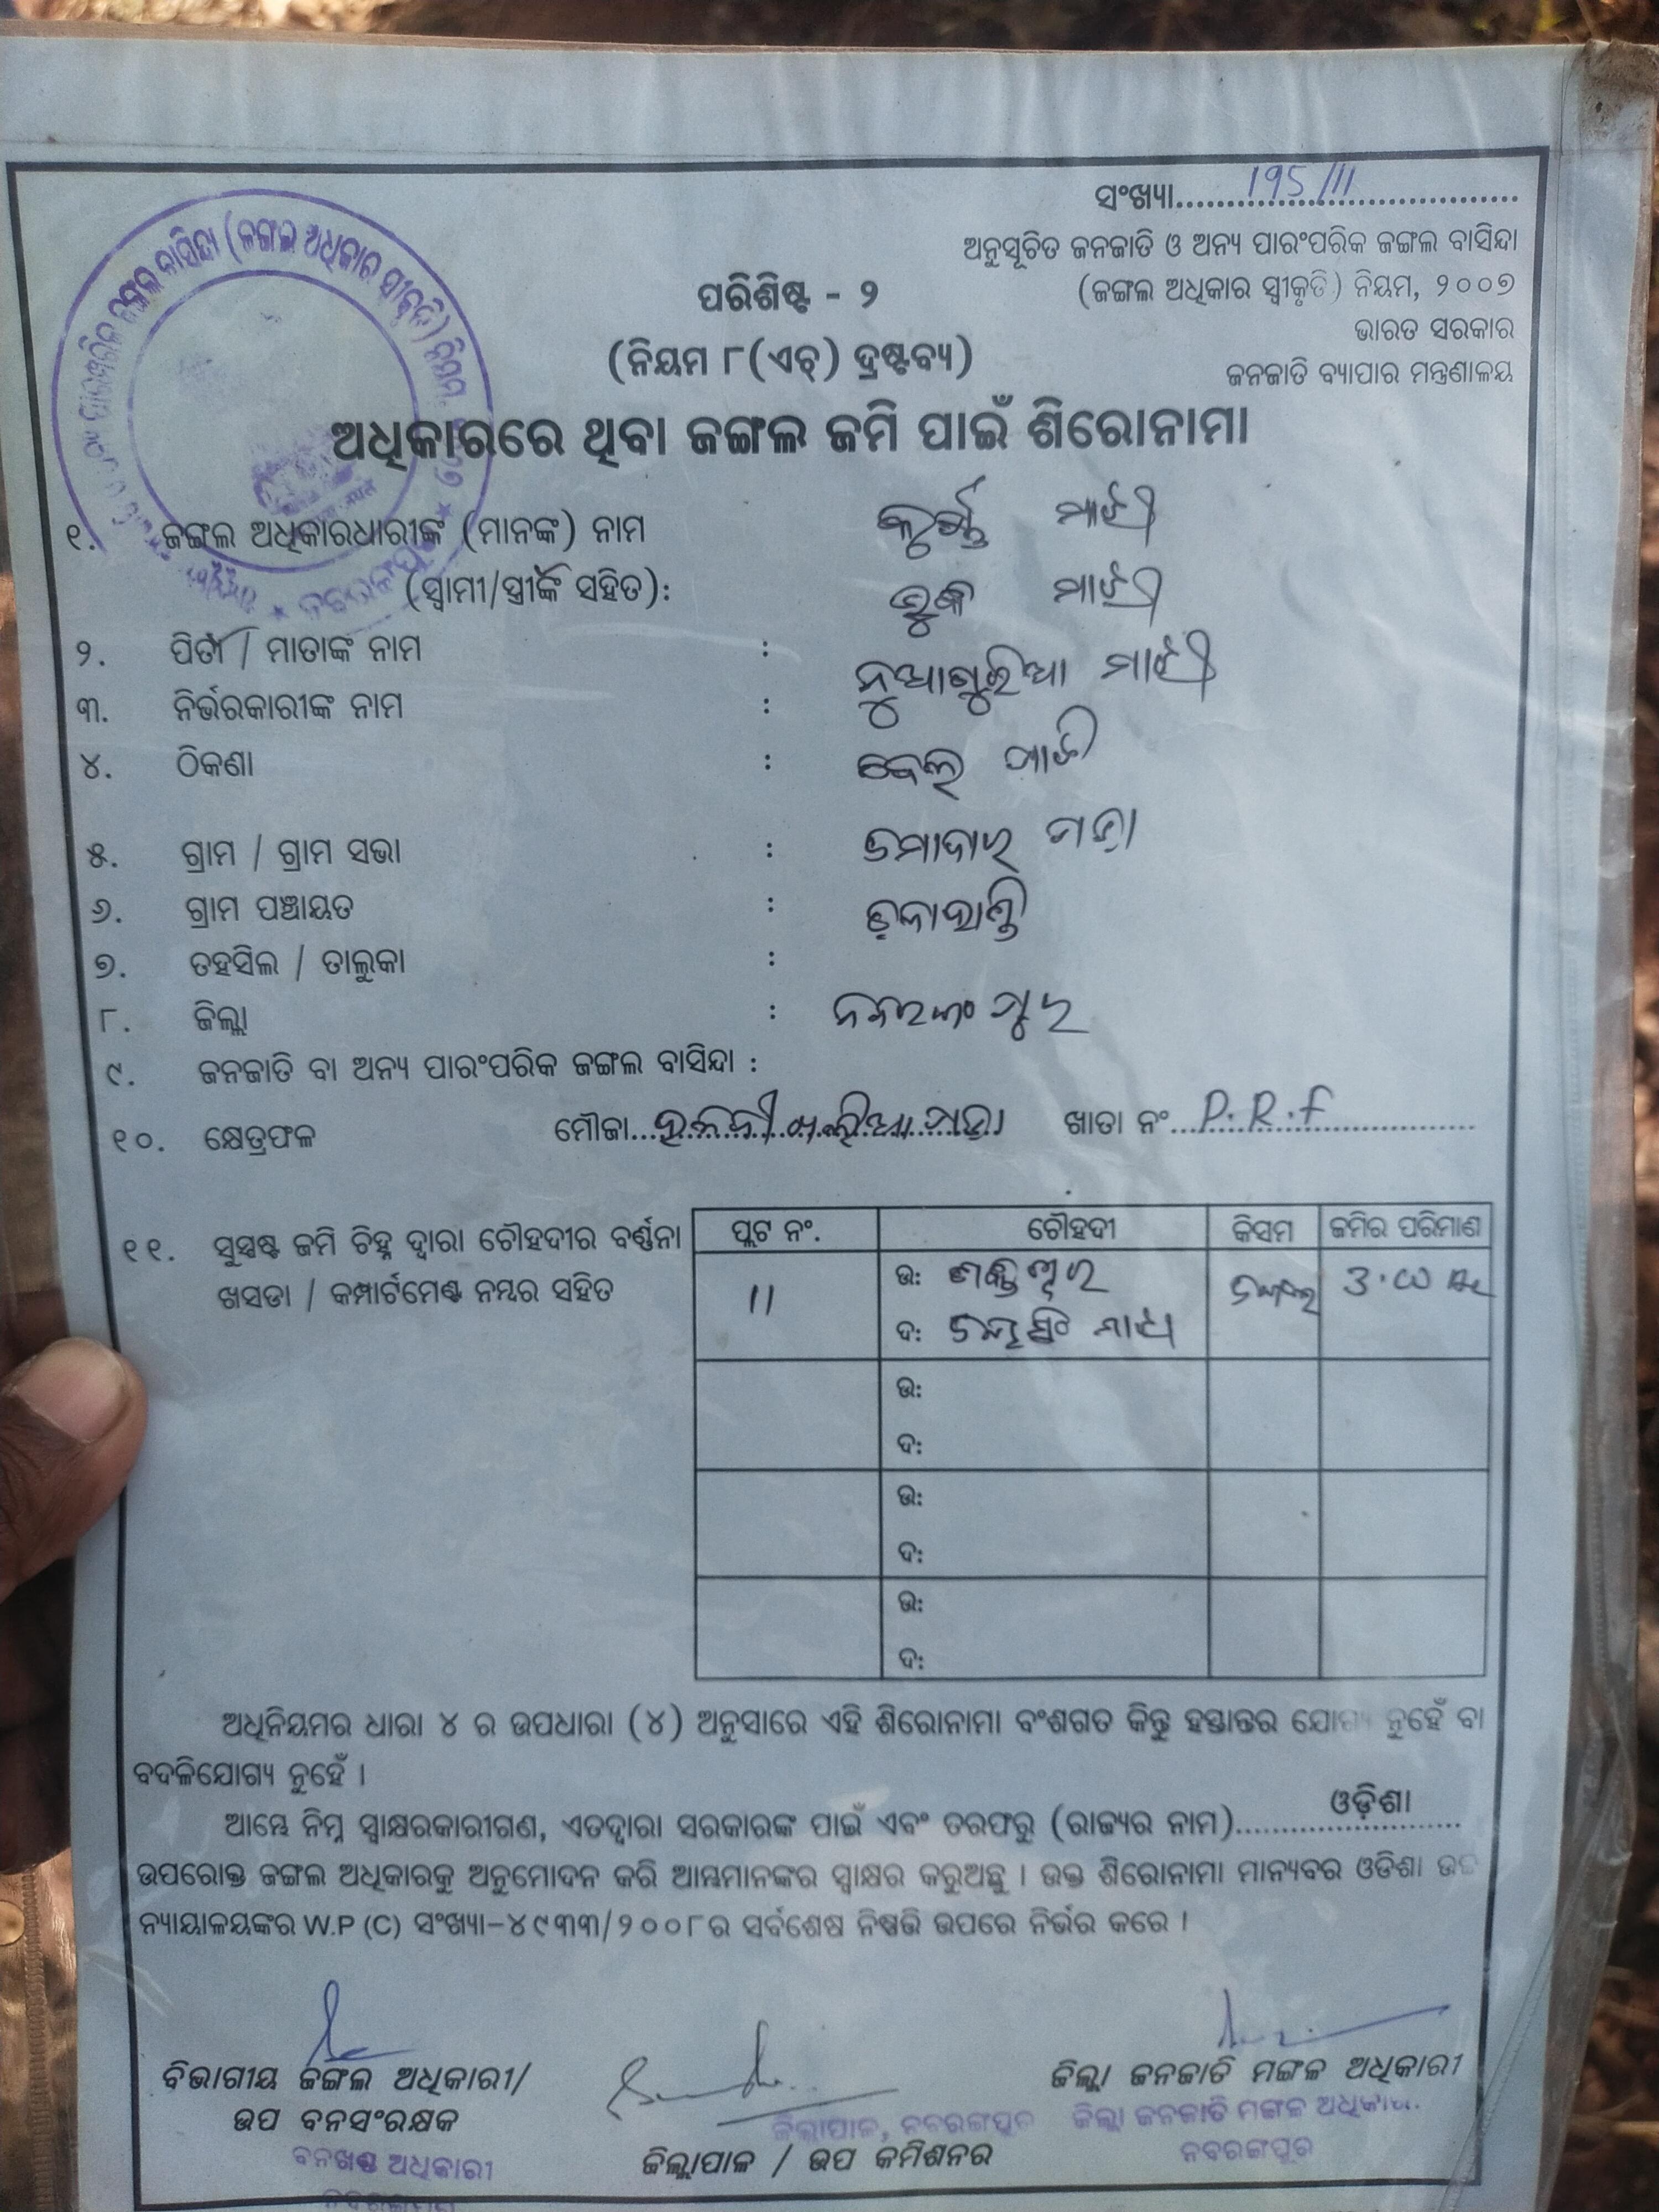 ସଂଖ୍ୟା 195/11
ଅନୁସୂଚିତ ଜନଜାତି ଓ ଅନ୍ୟ ପାରଂପରିକ ଜଙ୍ଗଲ ବାସିନ୍ଦା
(ଜଙ୍ଗଲ ଅଧିକାର ସ୍ୱୀକୃତି) ନିୟମ, ୨୦୦୭
ଭାରତ ସରକାର
ଜନଜାତି ବ୍ୟାପାର ମନ୍ତ୍ରଣାଳୟ
ପରିଶିଷ୍ଟ - ୨
(ନିୟମ ୮(ଏଚ୍) ଦ୍ରଷ୍ଟବ୍ୟ)
ଅଧିକାରରେ ଥିବା ଜଙ୍ଗଲ ଜମି ପାଇଁ ଶିରୋନାମା
୧. ଜଙ୍ଗଲ ଅଧିକାରଧାରୀଙ୍କ (ମାନଙ୍କ) ନାମ ମାଝୀ
(ସ୍ୱାମୀ/ସ୍ତ୍ରୀଙ୍କ ସହିତ): ମାଝୀ
୨. ପିତା / ମାତାଙ୍କ ନାମ : ମାଝୀ
୩. ନିର୍ଭରକାରୀଙ୍କ ନାମ :
୪. ଠିକଣା :
୫. ଗ୍ରାମ / ଗ୍ରାମ ସଭା :
୬. ଗ୍ରାମ ପଞ୍ଚାୟତ :
୭. ତହସିଲ / ତାଲୁକା :
୮. ଜିଲ୍ଲା : ନବରଙ୍ଗପୁର
୯. ଜନଜାତି ବା ଅନ୍ୟ ପାରଂପରିକ ଜଙ୍ଗଲ ବାସିନ୍ଦା :
୧୦. କ୍ଷେତ୍ରଫଳ ମୌଜା ଖାତା ନଂ P.R.F
୧୧. ସୁସ୍ପଷ୍ଟ ଜମି ଚିହ୍ନ ଦ୍ୱାରା ଚୌହଦୀର ବର୍ଣ୍ଣନା
ଖସଡା / କମ୍ପାର୍ଟମେଣ୍ଟ ନମ୍ବର ସହିତ
ପ୍ଲଟ ନଂ. ଚୌହଦୀ କିସମ ଜମିର ପରିମାଣ
11 ଉ: 3.00
ଦ:
ଉ:
ଦ:
ଉ:
ଦ:
ଉ:
ଦ:
ଅଧିନିୟମର ଧାରା ୪ ର ଉପଧାରା (୪) ଅନୁସାରେ ଏହି ଶିରୋନାମା ବଂଶଗତ କିନ୍ତୁ ହସ୍ତାନ୍ତର ଯୋଗ୍ୟ ନୁହେଁ ବା
ବଦଳିଯୋଗ୍ୟ ନୁହେଁ ।
ଆମ୍ଭେ ନିମ୍ନ ସ୍ୱାକ୍ଷରକାରୀଗଣ, ଏତଦ୍ୱାରା ସରକାରଙ୍କ ପାଇଁ ଏବଂ ତରଫରୁ (ରାଜ୍ୟର ନାମ) ଓଡ଼ିଶା
ଉପରୋକ୍ତ ଜଙ୍ଗଲ ଅଧିକାରକୁ ଅନୁମୋଦନ କରି ଆମ୍ଭମାନଙ୍କର ସ୍ୱାକ୍ଷର କରୁଅଛୁ । ଉକ୍ତ ଶିରୋନାମା ମାନ୍ୟବର ଓଡିଶା ଉଚ୍ଚ
ନ୍ୟାୟାଳୟଙ୍କର W.P (C) ସଂଖ୍ୟା-୪୯୩୩/୨୦୦୮ର ସର୍ବଶେଷ ନିଷ୍ପତ୍ତି ଉପରେ ନିର୍ଭର କରେ ।
ବିଭାଗୀୟ ଜଙ୍ଗଲ ଅଧିକାରୀ/
ଉପ ବନସଂରକ୍ଷକ
ବନଖଣ୍ଡ ଅଧିକାରୀ
ଜିଲ୍ଲାପାଳ, ନବରଙ୍ଗପୁର
ଜିଲ୍ଲାପାଳ / ଉପ କମିଶନର
ଜିଲ୍ଲା ଜନଜାତି ମଙ୍ଗଳ ଅଧିକାରୀ
ଜିଲ୍ଲା ଜନଜାତି ମଙ୍ଗଳ ଅଧିକାରୀ
ନବରଙ୍ଗପୁର